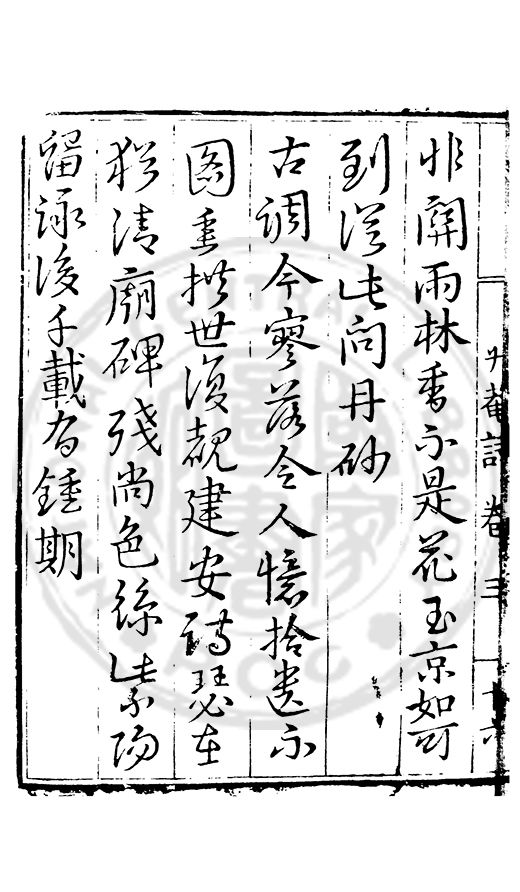 菴詩 卷三 十六
非關雨林香不是花玉京如可
到從此問丹砂
古調今寥落令人憶拾遺不
圖垂拱世復覩建安詩瑟在
猶清廟碑殘尚色絲紫陽
留詠後千載有鍾期